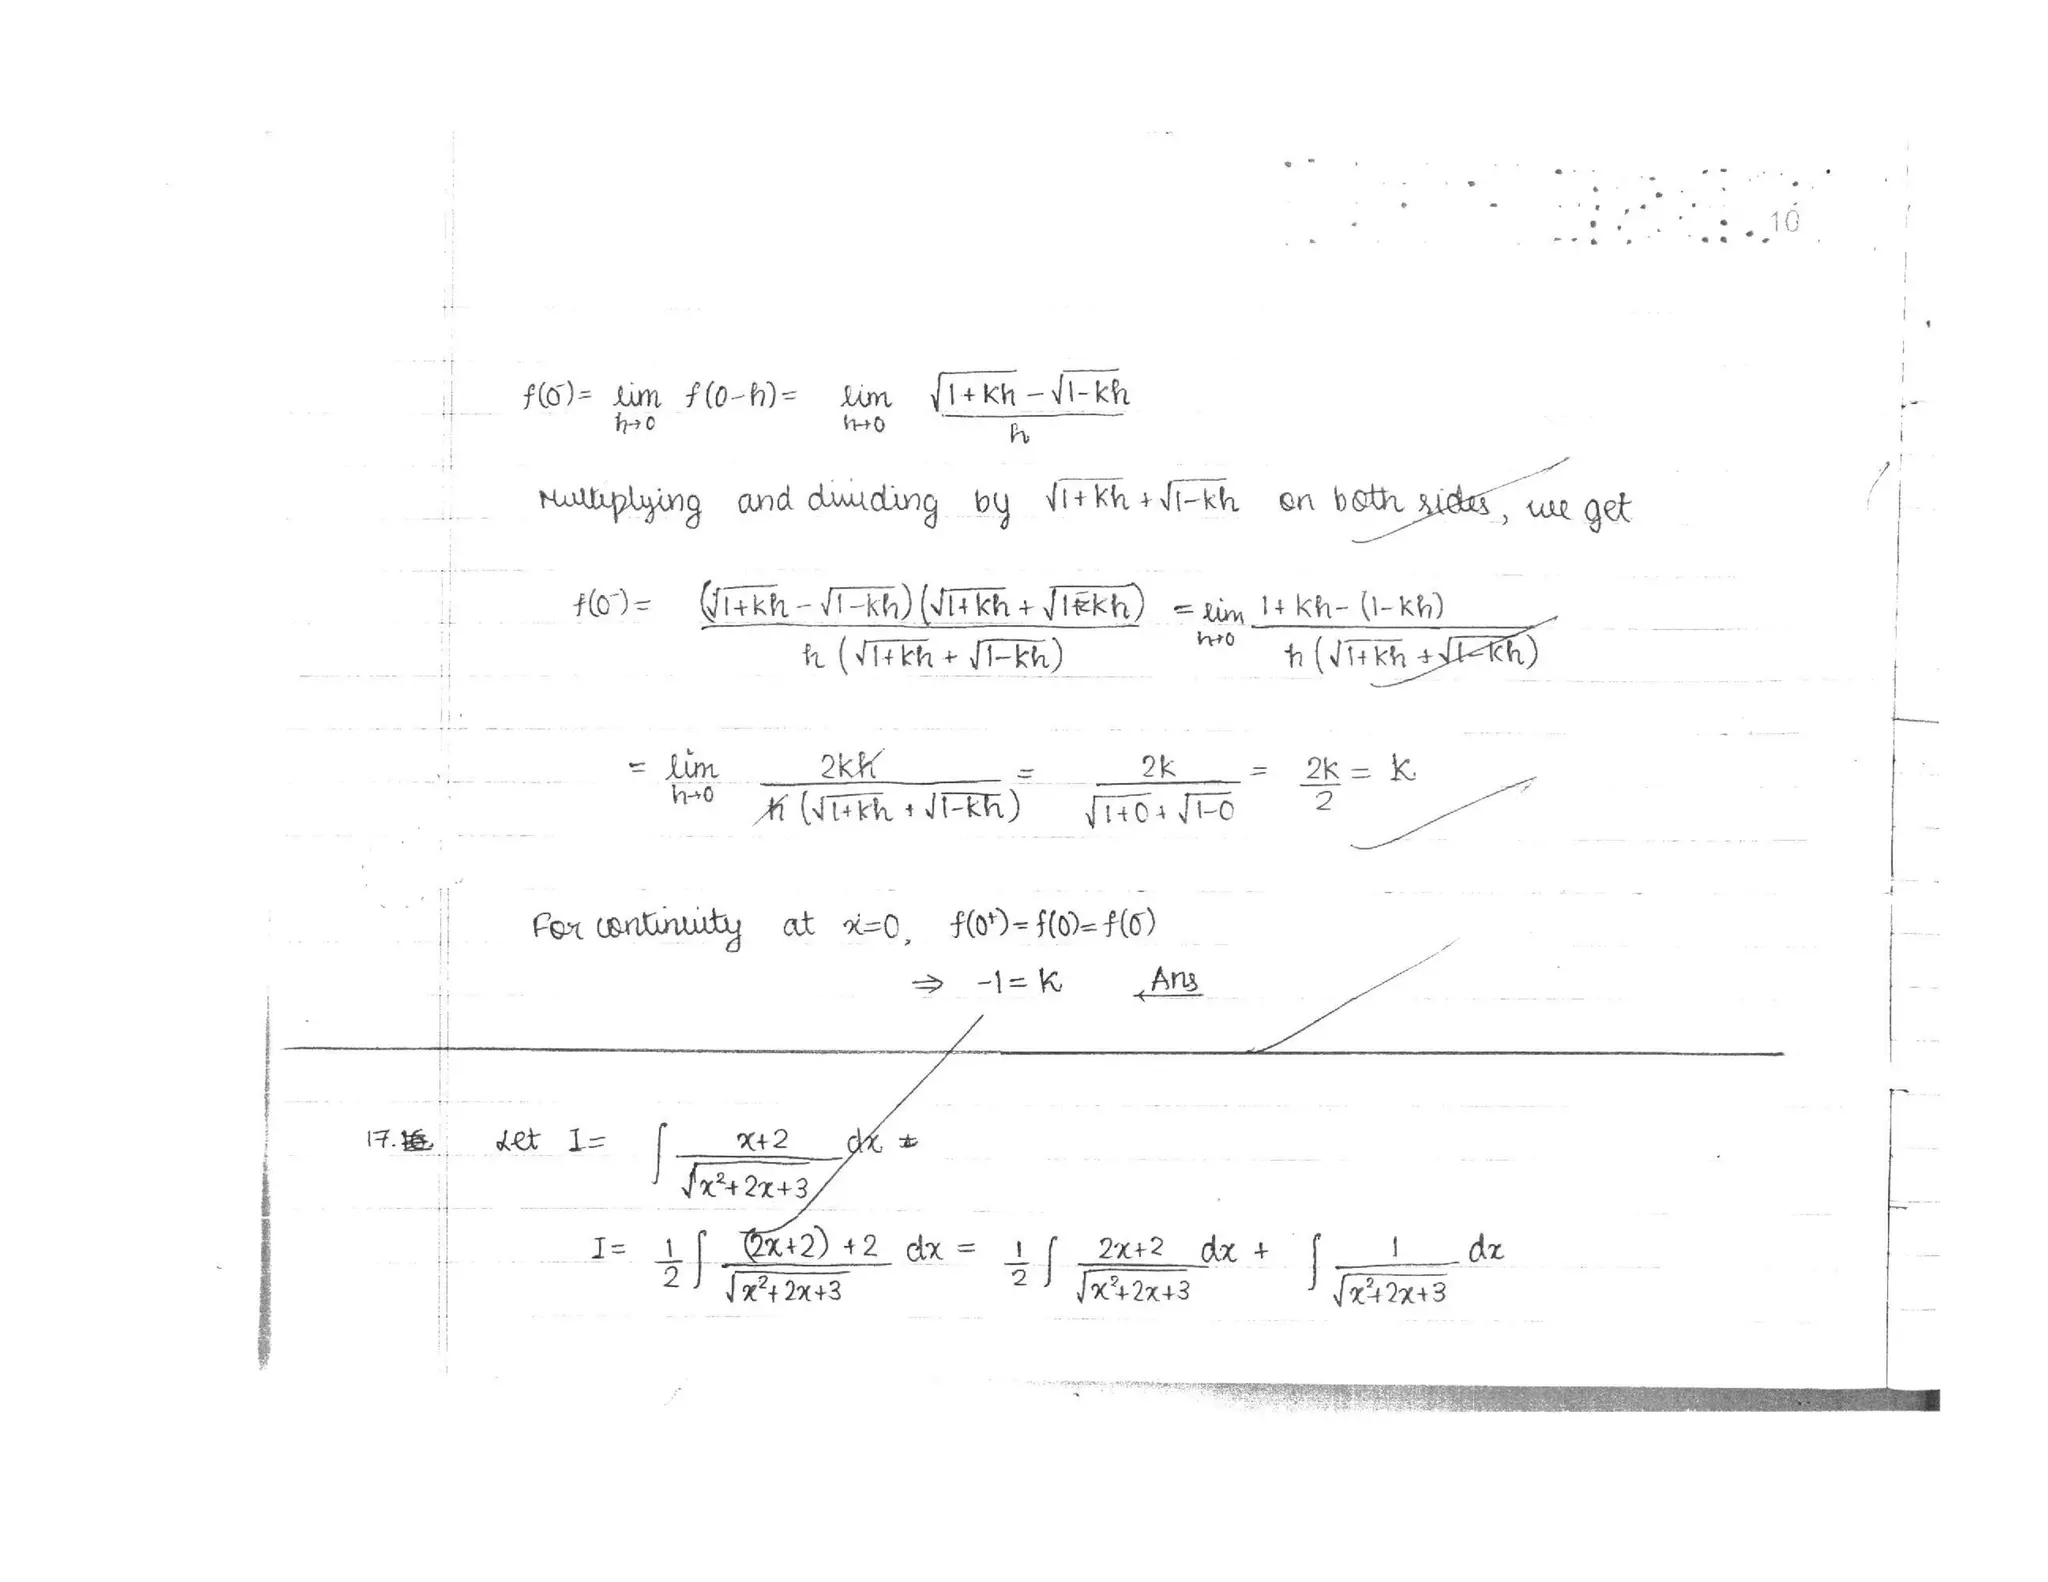 10
f(0⁻) = lim h→0 f(0-h) = lim h→0 (√1+kh - √1-kh) / h
Multiplying and dividing by √1+kh + √1-kh on both sides, we get
f(0⁻) = (√1+kh - √1-kh)(√1+kh + √1-kh) / h(√1+kh + √1-kh) = lim h→0 1+kh-(1-kh) / h(√1+kh + √1-kh)
= lim h→0 2kh / h(√1+kh + √1-kh) = 2k / √1+0 + √1-0 = 2k/2 = k
For continuity at x=0, f(0⁺)=f(0)=f(0⁻)
⇒ -1 = k Ans
17. Let I = ∫ x+2 / √x²+2x+3 dx =
I = 1/2 ∫ (2x+2)+2 / √x²+2x+3 dx = 1/2 ∫ 2x+2 / √x²+2x+3 dx + ∫ 1 / √x²+2x+3 dx